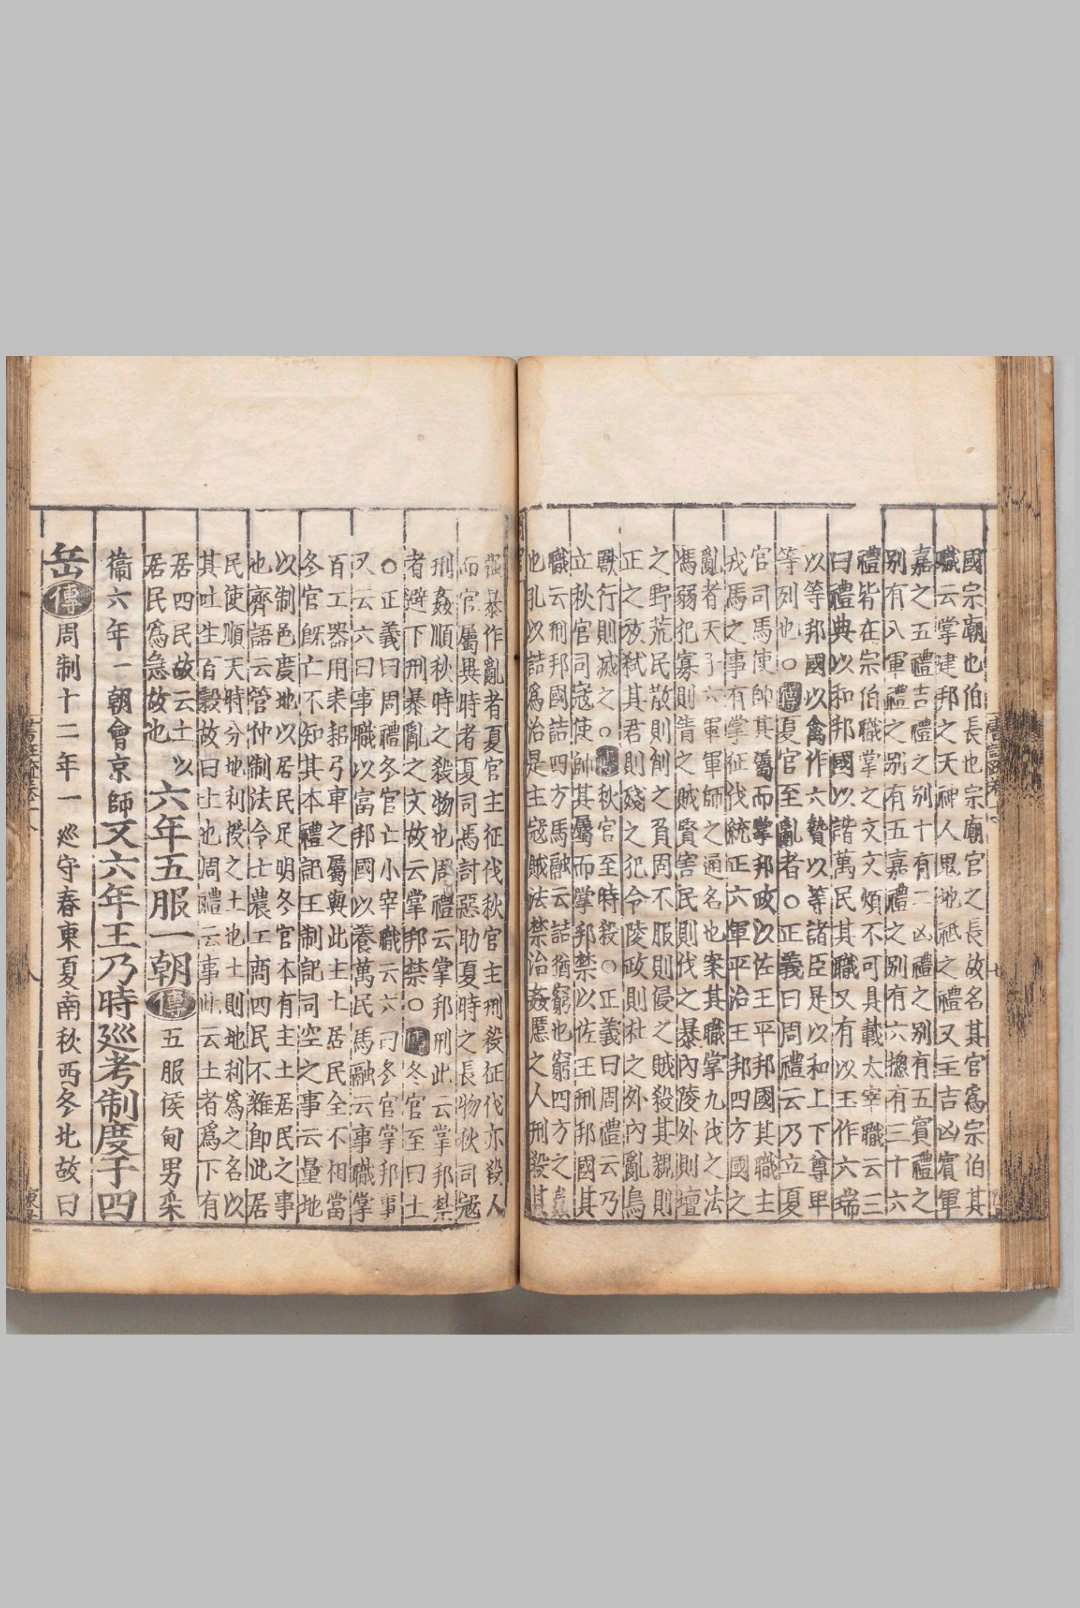 國宗廟也伯長也宗廟官之長故名其官爲宗伯其
職云掌建邦之天神人鬼地祇之禮又主吉凶賓軍
嘉之五禮吉禮之别十有二凶禮之别有五賓禮之
别有八軍禮之别有五嘉禮之别有六揔有三十六
禮皆在宗伯職掌之文文煩不可具載太宰職云三
曰禮典以和邦國以諧萬民其職又有以王作六端
以等邦國以禽作六贄以等諸臣是以和上下尊卑
等列也○傳夏官至亂者○正義曰周禮云乃立夏
官司馬使帥其屬而掌邦政以佐王平邦國其職主
戎馬之事有掌征伐統正六軍平治王邦四方國之
亂者天子六軍軍師之通名也案其職掌九伐之法
馮弱犯寡則眚之賊賢害民則伐之暴內陵外則壇
之野荒民散則削之負固不服則侵之賊殺其親則
正之放弑其君則殘之犯令陵政則杜之外內亂鳥
獸行則滅之○傳秋官至時殺○正義曰周禮云乃
立秋官司寇使帥其屬而掌邦禁以佐王刑邦國其
職云刑邦國詰四方馬融云詰猶窮也窮四方之姦
也孔以詰爲治是主寇賊法禁治姦慝之人刑殺其
强暴作亂者夏官主征伐秋官主刑殺征伐亦殺人
而官屬異時者夏司馬討惡助夏時之長物秋司寇
刑姦順秋時之殺物也周禮云掌邦刑此云掌邦禁
者避下刑暴亂之文故云掌邦禁○傳冬官至曰土
○正義曰周禮冬官亡小宰職云六曰冬官掌邦事
又云六曰事職以富邦國以養萬民馬融云事職掌
百工器用耒耜弓車之屬與此主土居民全不相當
冬官旣亡不知其本禮記王制記司空之事云量地
以制邑度地以居民足明冬官本有主土居民之事
也齊語云管仲制法令士農工商四民不雜卽此居
民使順天時分地利授之土也土則地利爲之名以
其吐生百穀故曰土也周禮云事此云土者爲下有
居四民故云土以
居民爲急故也
六年五服一朝傳五服侯甸男采
衞六年一朝會京師又六年王乃時廵考制度于四
岳傳周制十二年一廵守春東夏南秋西冬北故曰